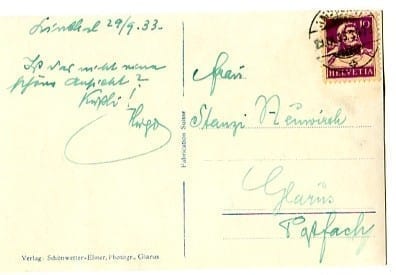 Linthal 29/9.33.
Ist das nicht eine
schöne Ansicht?
Hugo
Frau
Stanzi Neuwirth
Glarus
Postfach
10
HELVETIA
Fabrication Suisse
Verlag Schönwetter-Elmer, Photogr., Glarus